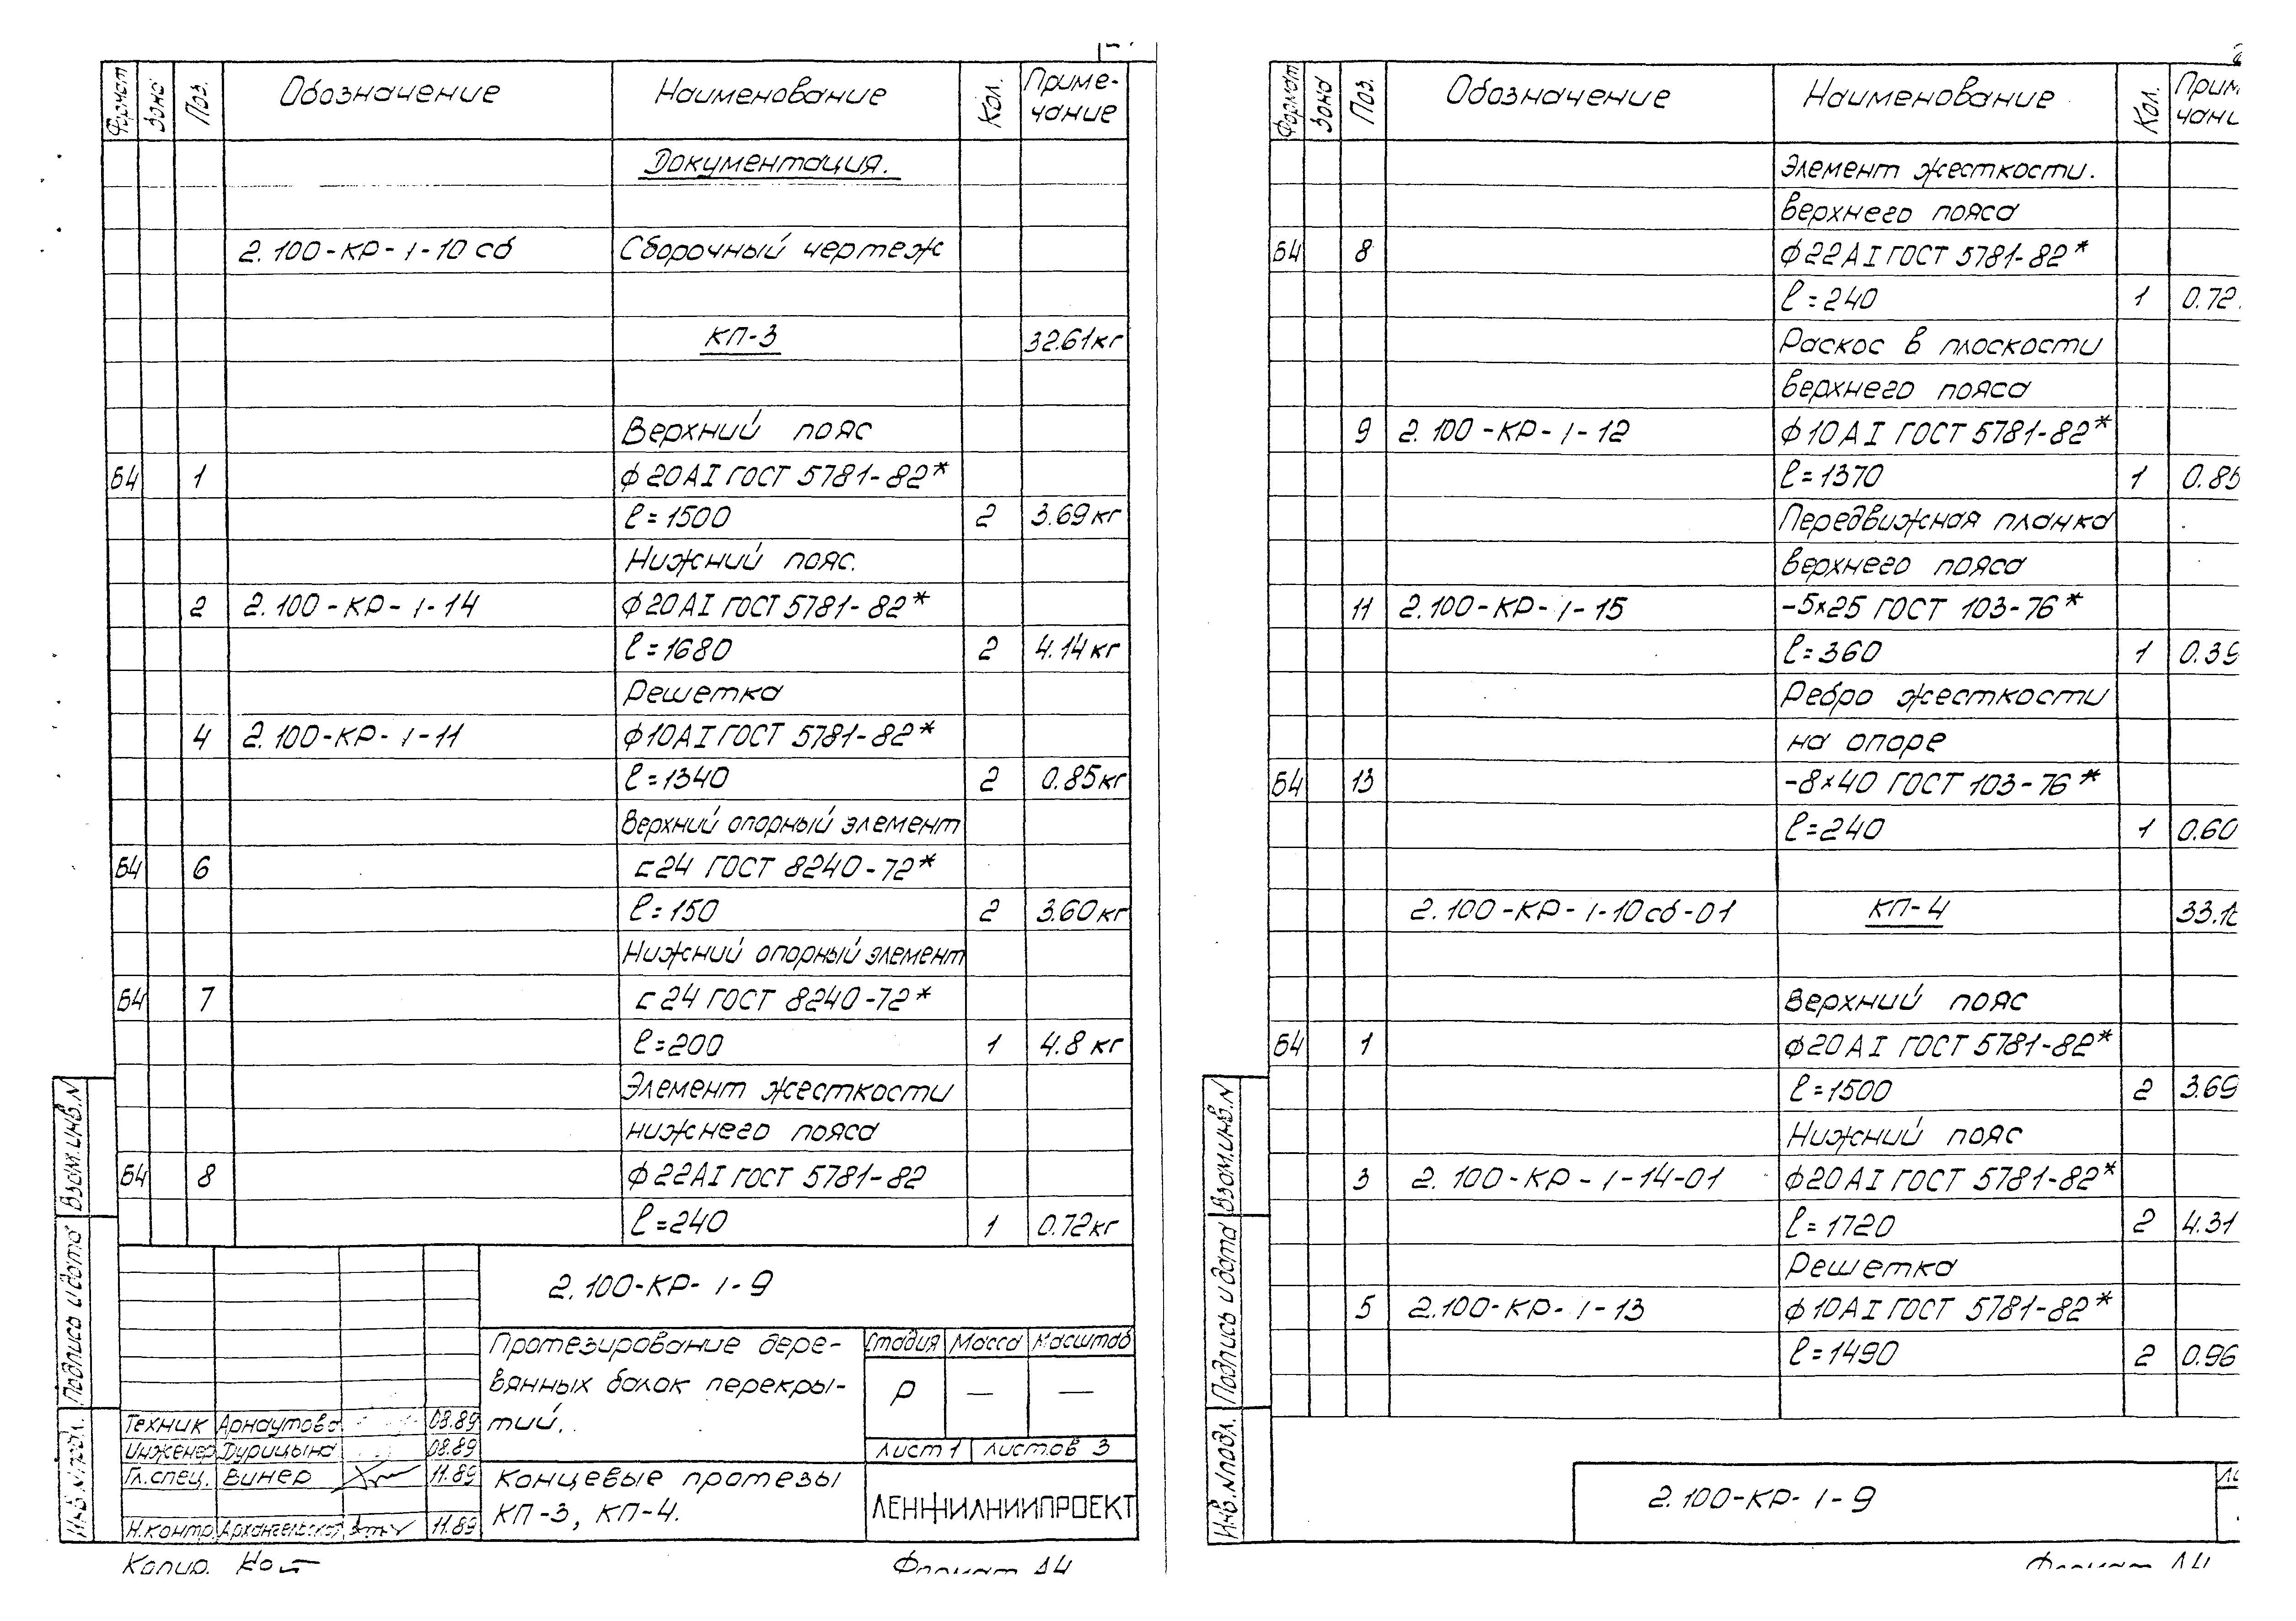 Формат Зона Поз. Обозначение Наименование Кол. Приме-
чание
Документация.
2.100-КР-1-10 сб Сборочный чертеж
КП-3 32.61кг
Верхний пояс
Б4 1 ф20АI ГОСТ 5781-82*
ℓ=1500 2 3.69кг
Нижний пояс.
2 2.100-КР-1-14 ф20АI ГОСТ 5781-82*
ℓ=1680 2 4.14кг
Решетка
4 2.100-КР-1-11 ф10АI ГОСТ 5781-82*
ℓ=1340 2 0.85кг
Верхний опорный элемент
Б4 6 с24 ГОСТ 8240-72*
ℓ=150 2 3.60кг
Нижний опорный элемент
Б4 7 с24 ГОСТ 8240-72*
ℓ=200 1 4.8 кг
Элемент жесткости
нижнего пояса
Б4 8 ф22АI ГОСТ 5781-82
ℓ=240 1 0.72кг
2.100-КР-1-9
Протезирование дере-
вянных балок перекры-
тий.
Стадия Масса Масштаб
Р — —
Лист 1 Листов 3
Концевые протезы
КП-3, КП-4.
ЛЕНЖИЛНИИПРОЕКТ
Техник Арнаутова 08.89
Инженер Дурицына 08.89
Гл.спец. Винер 11.89
Н.контр. Архангельская 11.89
Взам.инв.N
Подпись и дата
Инв.N подл.
Копир.
Формат А4
Формат Зона Поз. Обозначение Наименование Кол. Прим
чани
Элемент жесткости.
верхнего пояса
Б4 8 ф22АI ГОСТ 5781-82*
ℓ=240 1 0.72
Раскос в плоскости
верхнего пояса
9 2.100-КР-1-12 ф10АI ГОСТ 5781-82*
ℓ=1370 1 0.85
Передвижная планка
верхнего пояса
11 2.100-КР-1-15 -5×25 ГОСТ 103-76*
ℓ=360 1 0.39
Ребро жесткости
на опоре
Б4 13 -8×40 ГОСТ 103-76*
ℓ=240 1 0.60
2.100-КР-1-10сб-01 КП-4 33.1
Верхний пояс
Б4 1 ф20АI ГОСТ 5781-82*
ℓ=1500 2 3.69
Нижний пояс
3 2.100-КР-1-14-01 ф20АI ГОСТ 5781-82*
ℓ=1720 2 4.31
Решетка
5 2.100-КР-1-13 ф10АI ГОСТ 5781-82*
ℓ=1490 2 0.96
2.100-КР-1-9
Взам.инв.N
Подпись и дата
Инв.N подл.
Формат А4